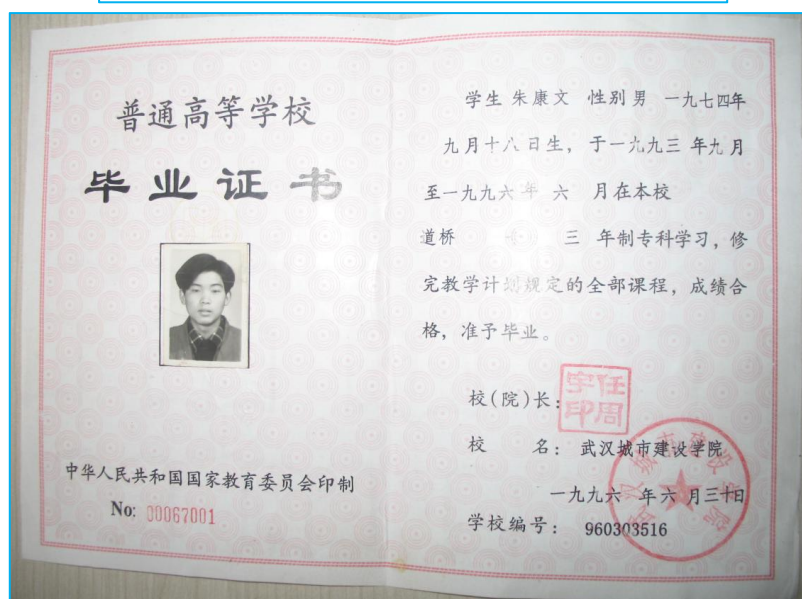 普通高等学校
毕业证书
中华人民共和国国家教育委员会印制
No: 00067001
学生 朱康文 性别 男 一九七四年
九月十八日生，于一九九三 年九月
至一九九六年 六 月在本校
道桥 三 年制专科学习，修
完教学计划规定的全部课程，成绩合
格，准予毕业。
校(院)长：
任周宇印
校 名： 武汉城市建设学院
一九九六 年 六 月三十日
学校编号： 960303516
武汉城市建设学院